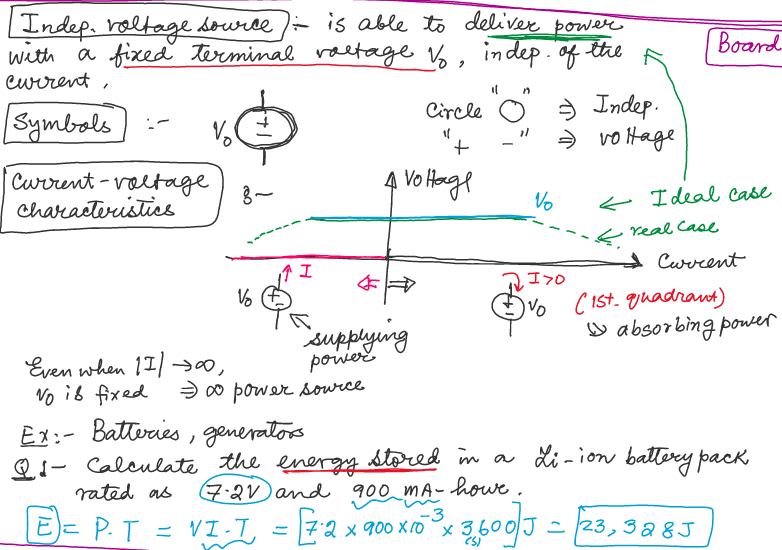 Indep. voltage source :- is able to deliver power
with a fixed terminal voltage V₀, indep. of the
current.
Board
Symbols :-
V₀ + -
Circle "○" ⇒ Indep.
"+ -" ⇒ voltage
Current-voltage
characteristics :-
Voltage
V₀
← Ideal case
← real case
Current
↑ I
⇐ ⇒
I>0
V₀ + -
+ - V₀
(1st. quadrant)
↳ absorbing power
supplying
power
Even when |I| → ∞,
V₀ is fixed ⇒ ∞ power source
Ex:- Batteries, generators
Q1- Calculate the energy stored in a Li-ion battery pack
rated as 7.2V and 900 mA-hour.
E = P.T = VI.T = [7.2 × 900×10⁻³ × 3,600]J = 23,328J
(s)